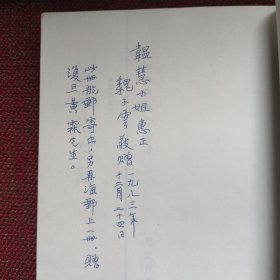 韞慧小姐惠正
魏子雲敬贈 一九八三年
十二月二十四日
此冊航郵寄出，另再海郵上一冊，贈
復旦黃霖先生。